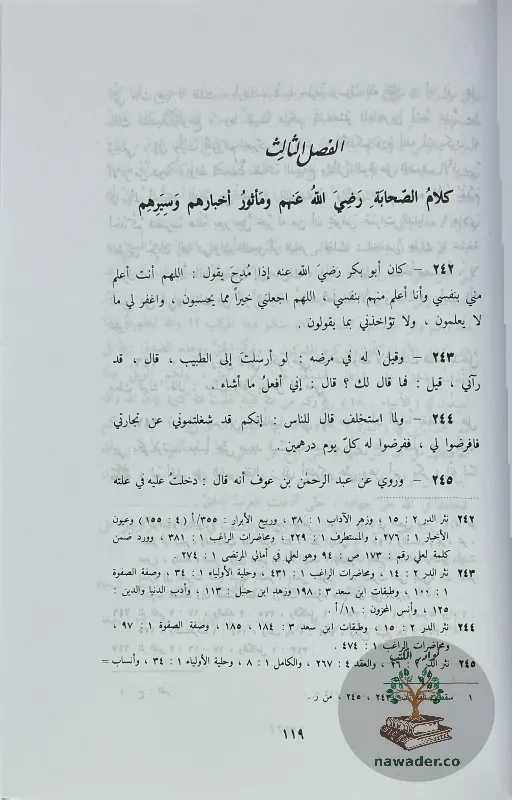 الفصل الثالث
كلامُ الصّحابَةِ رَضِيَ اللهُ عَنهم ومَأثورُ أخبارهم وَسِيَرِهِم
٢٤٢ – كان أبو بكر رضيَ الله عنه إذا مُدِحَ يقول : اللهم أنت أعلم
مني بنفسي وأنا أعلم منهم بنفسي ، اللهم اجعلني خيراً مما يحسبون ، واغفر لي ما
لا يعلمون ، ولا تؤاخذني بما يقولون .
٢٤٣ – وقيل١ له في مرضه : لو أرسلتَ إلى الطبيب ، قال ، قد
رآني ، قيل : فما قال لك ؟ قال : إني أفعلُ ما أشاء .
٢٤٤ – ولما استخلف قال للناس : إنكم قد شغلتموني عن تجارتي
فافرضوا لي ، ففرضوا له كلّ يوم درهمين .
٢٤٥ – وروي عن عبد الرحمٰن بن عوف أنه قال : دخلتُ عليه في علته
٢٤٢ نثر الدر ٢ : ١٥ ، وزهر الآداب ١ : ٣٨ ، وربيع الأبرار : ٣٥٥/أ (٤ : ١٥٥) وعيون
الأخبار ١ : ٢٧٦ ، والمستطرف ١ : ٢٢٩ ، ومحاضرات الراغب ١ : ٣٨١ ، وورد ضمن
كلمة لعلي رقم : ١٧٣ ص : ٩٤ وهو لعلي في أمالي المرتضى ١ : ٢٧٤ .
٢٤٣ نثر الدر ٢ : ١٤ ، ومحاضرات الراغب ١ : ٤٣١ ، وحلية الأولياء ١ : ٣٤ ، وصفة الصفوة
١ : ١٠٠ ، وطبقات ابن سعد ٣ : ١٩٨ وزهد ابن حنبل : ١١٣ ، وأدب الدنيا والدين :
١٢٥ ، وأنس المحزون : ١١/أ .
٢٤٤ نثر الدر ٢ : ١٥ ، وطبقات ابن سعد ٣ : ١٨٤ ، ١٨٥ ، وصفة الصفوة ١ : ٩٧ ،
ومحاضرات الراغب ١ : ٤٧٤ .
٢٤٥ نثر الدر ٢ : والعقد ٤ : ٢٦٧ ، والكامل ١ : ٨ ، وحلية الأولياء ١ : ٣٤ ، وأنساب =
١ سقطت ٢٤٣ ، ٢٤٥ ، من ر .
نوادر الكتب
nawader.co
١١٩